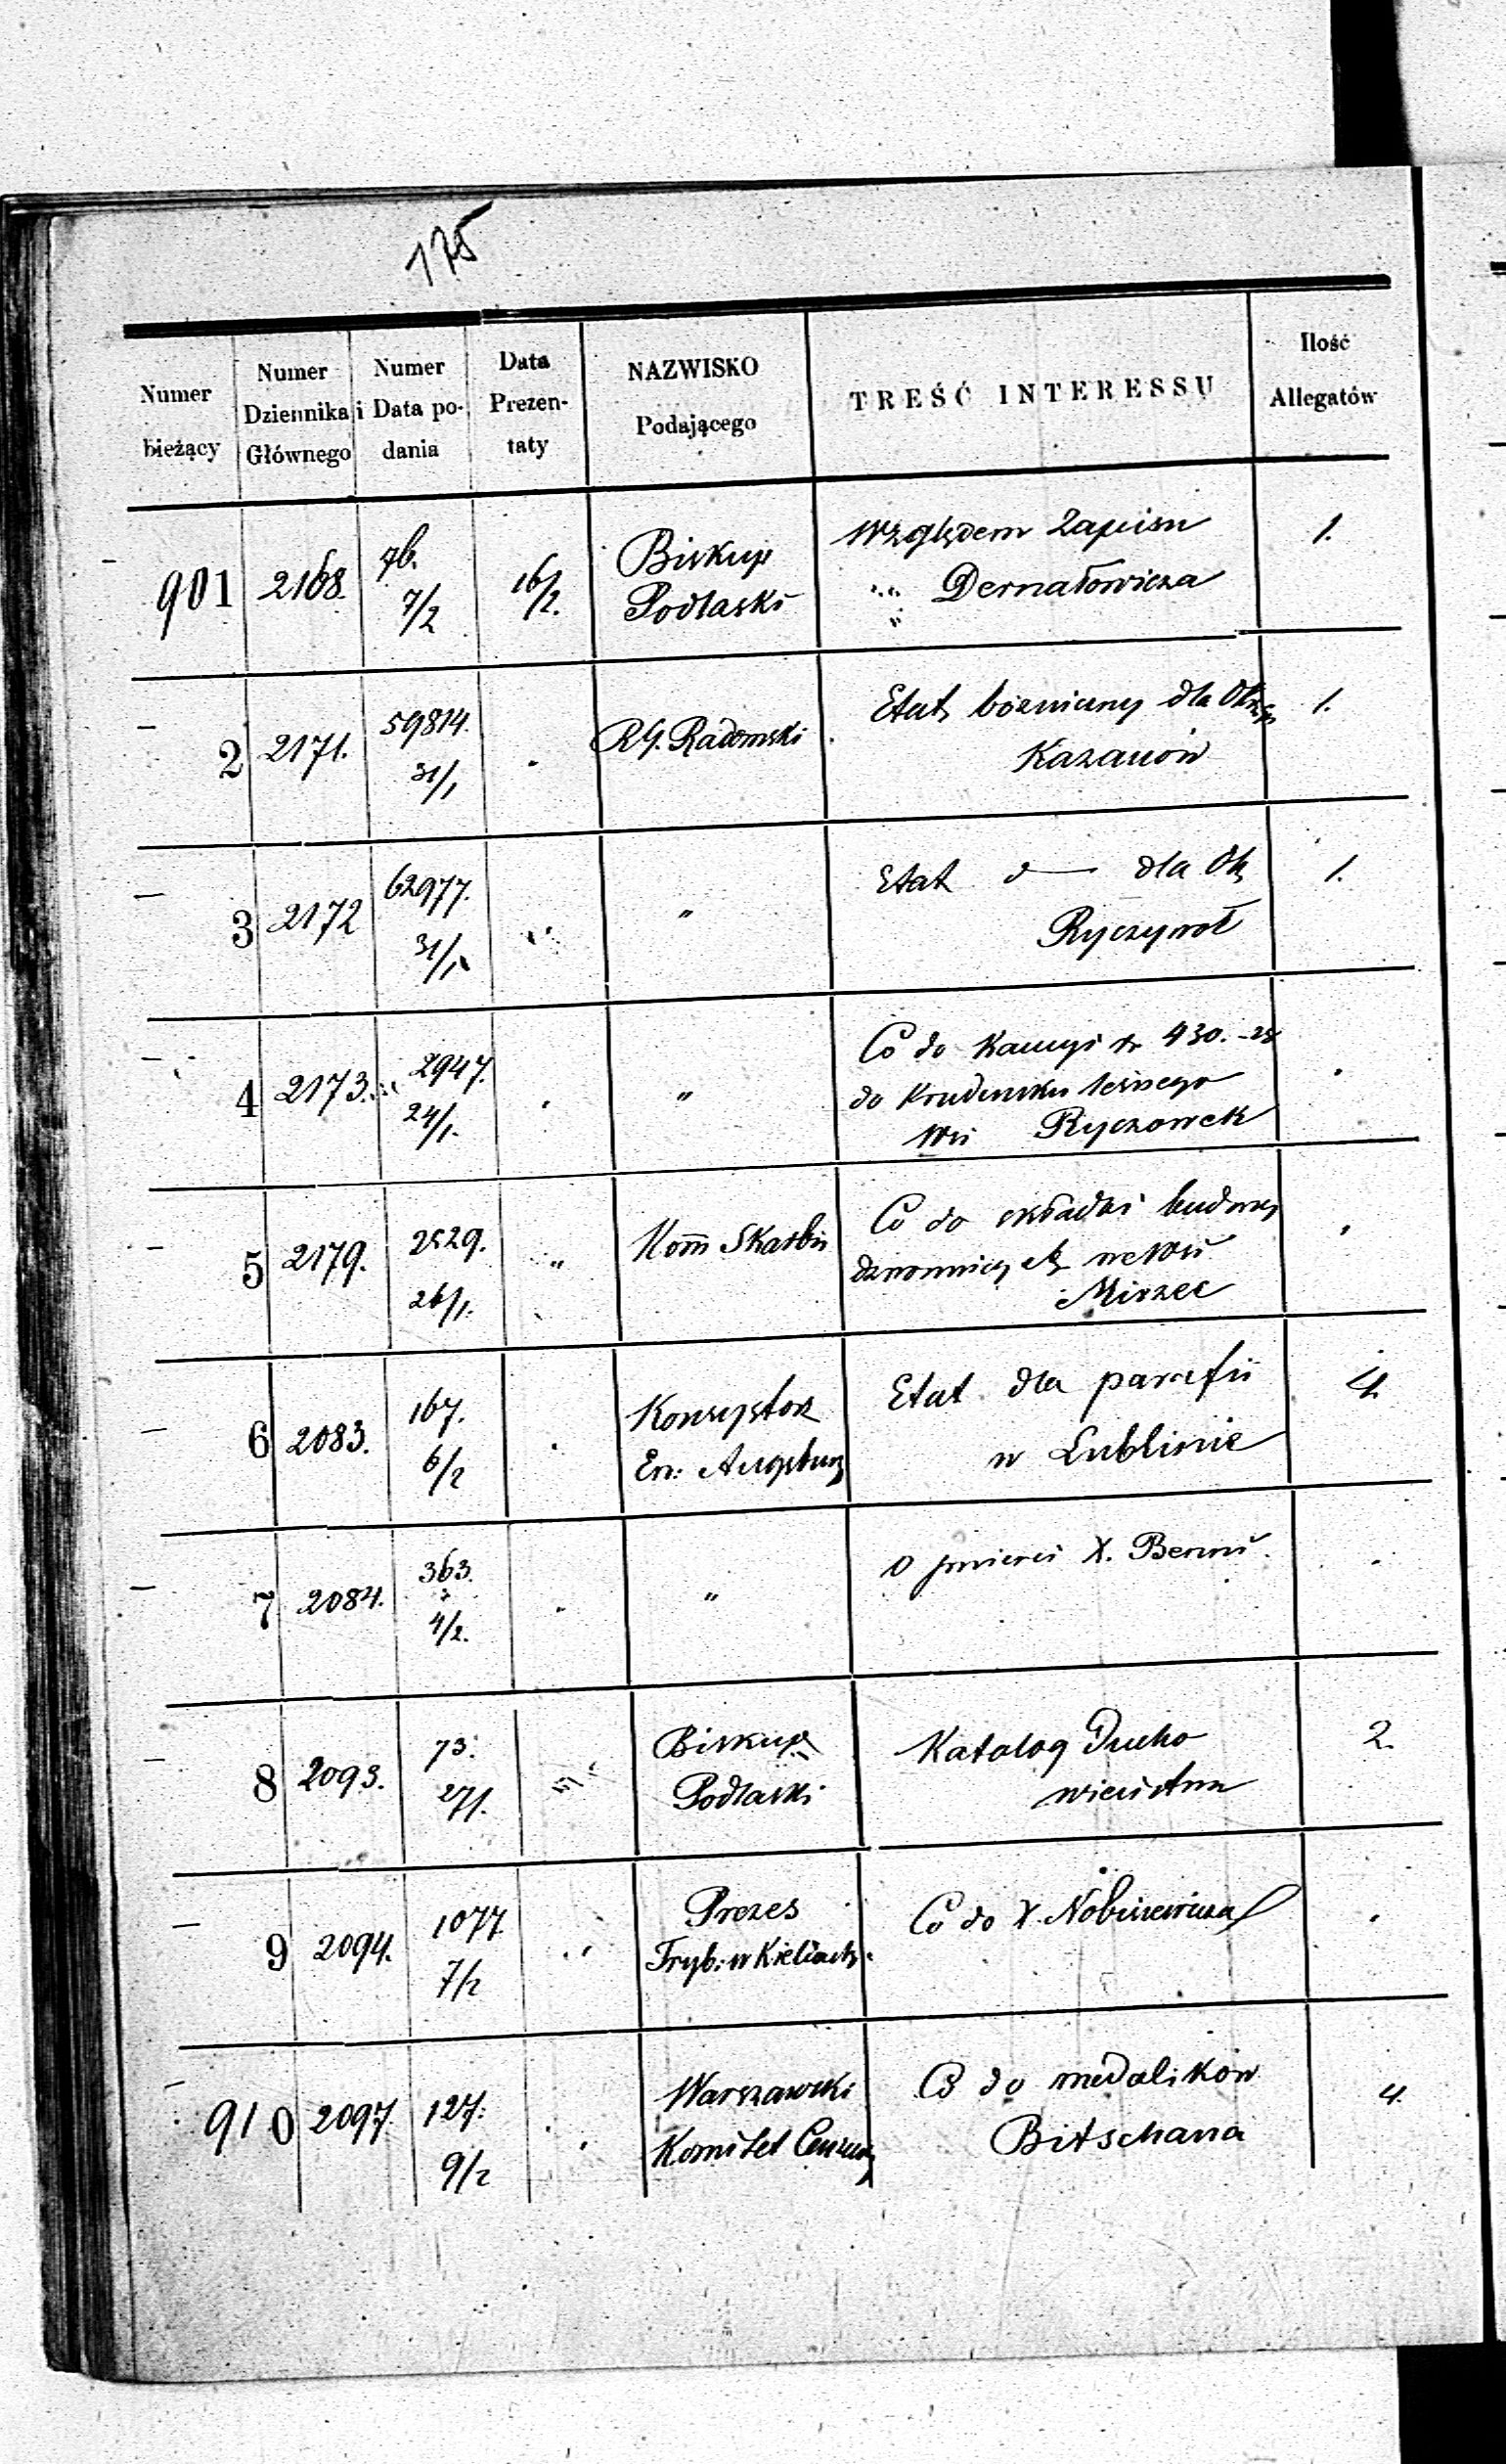 175
Numer bieżący | Numer Dziennika Głównego | Numer i Data podania | Data Prezentaty | NAZWISKO Podającego | TREŚĆ INTERESSU | Ilość Allegatów
901 2168. 76. 7/2 16/2. Biskup Podlaski Względem Zapisu Dernałowicza 1.
2 2171. 59814. 31/1 " R.G. Radomski Etat bóżniczny dla Okręg Kazanów 1.
3 2172 62977. 31/1 " " Etat d— dla Ok Ryczywół 1.
4 2173. 2947. 24/1. " " Co do Kaucyi 430.
do leśnego
Wsi Ryczowek
5 2179. 2529. 26/1. " Kom̄ Skarbu Co do składki budowy
dzwonnicy we Wsi
Mirzec
6 2083. 167. 6/2 " Konsystorz Ew: Augsburg Etat dla parafii w Lublinie 4.
7 2084. 363. 4/2. " " O śmierci X. Berni.
8 2093. 73. 27/1. " Biskup Podlaski Katalog Duchowieństwa 2.
9 2094. 1077. 7/2 " Prezes Tryb: w Kielcach Co do X.
910 2097. 127. 9/2 " Warszawski Komitet Cenzury Co do medalików Bitschana 4.